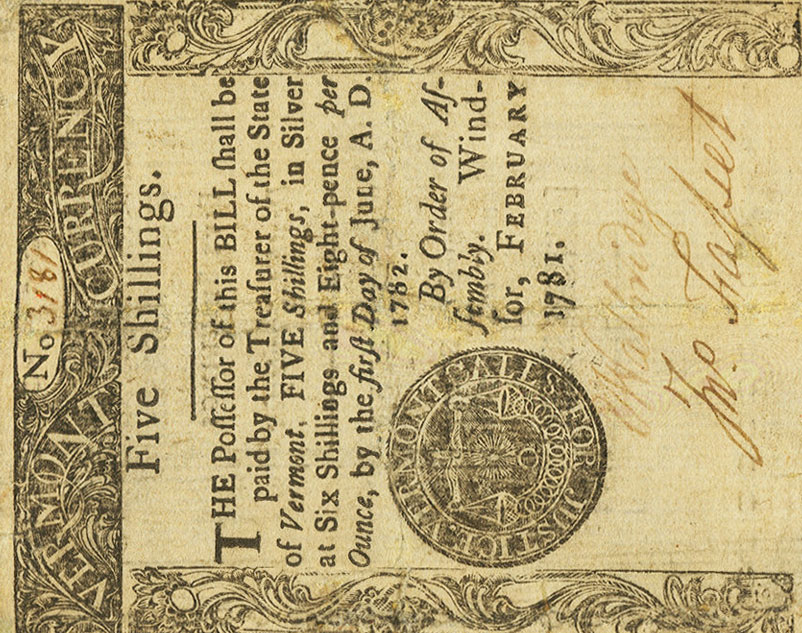 VERMONT CURRENCY
No 3181
Five Shillings.
THE Poſſeſſor of this BILL ſhall be
paid by the Treaſurer of the State
of Vermont, FIVE Shillings, in Silver
at Six Shillings and Eight-pence per
Ounce, by the firſt Day of June, A. D.
1782.
By Order of Aſ-
ſembly. Wind-
ſor, FEBRUARY
1781.
VERMONT CALLS FOR JUSTICE.
Walbridge
Jno. Faſset